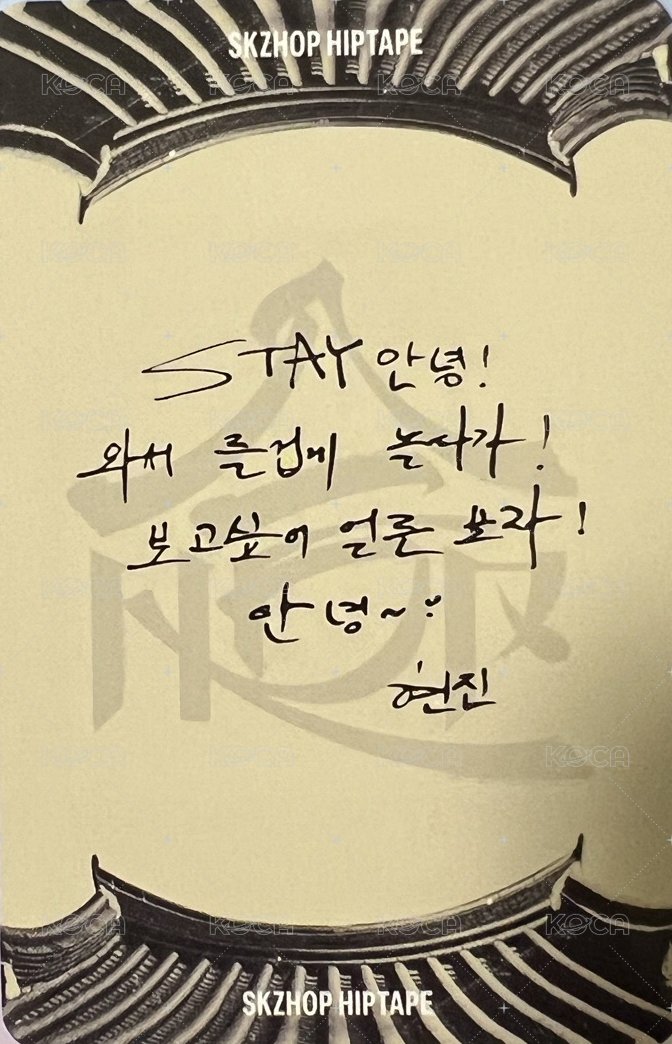 SKZHOP HIPTAPE
STAY 안녕!
와서 즐겁게 놀다가!
보고싶어 얼른 보자!
안녕~
현진
SKZHOP HIPTAPE
KOCA